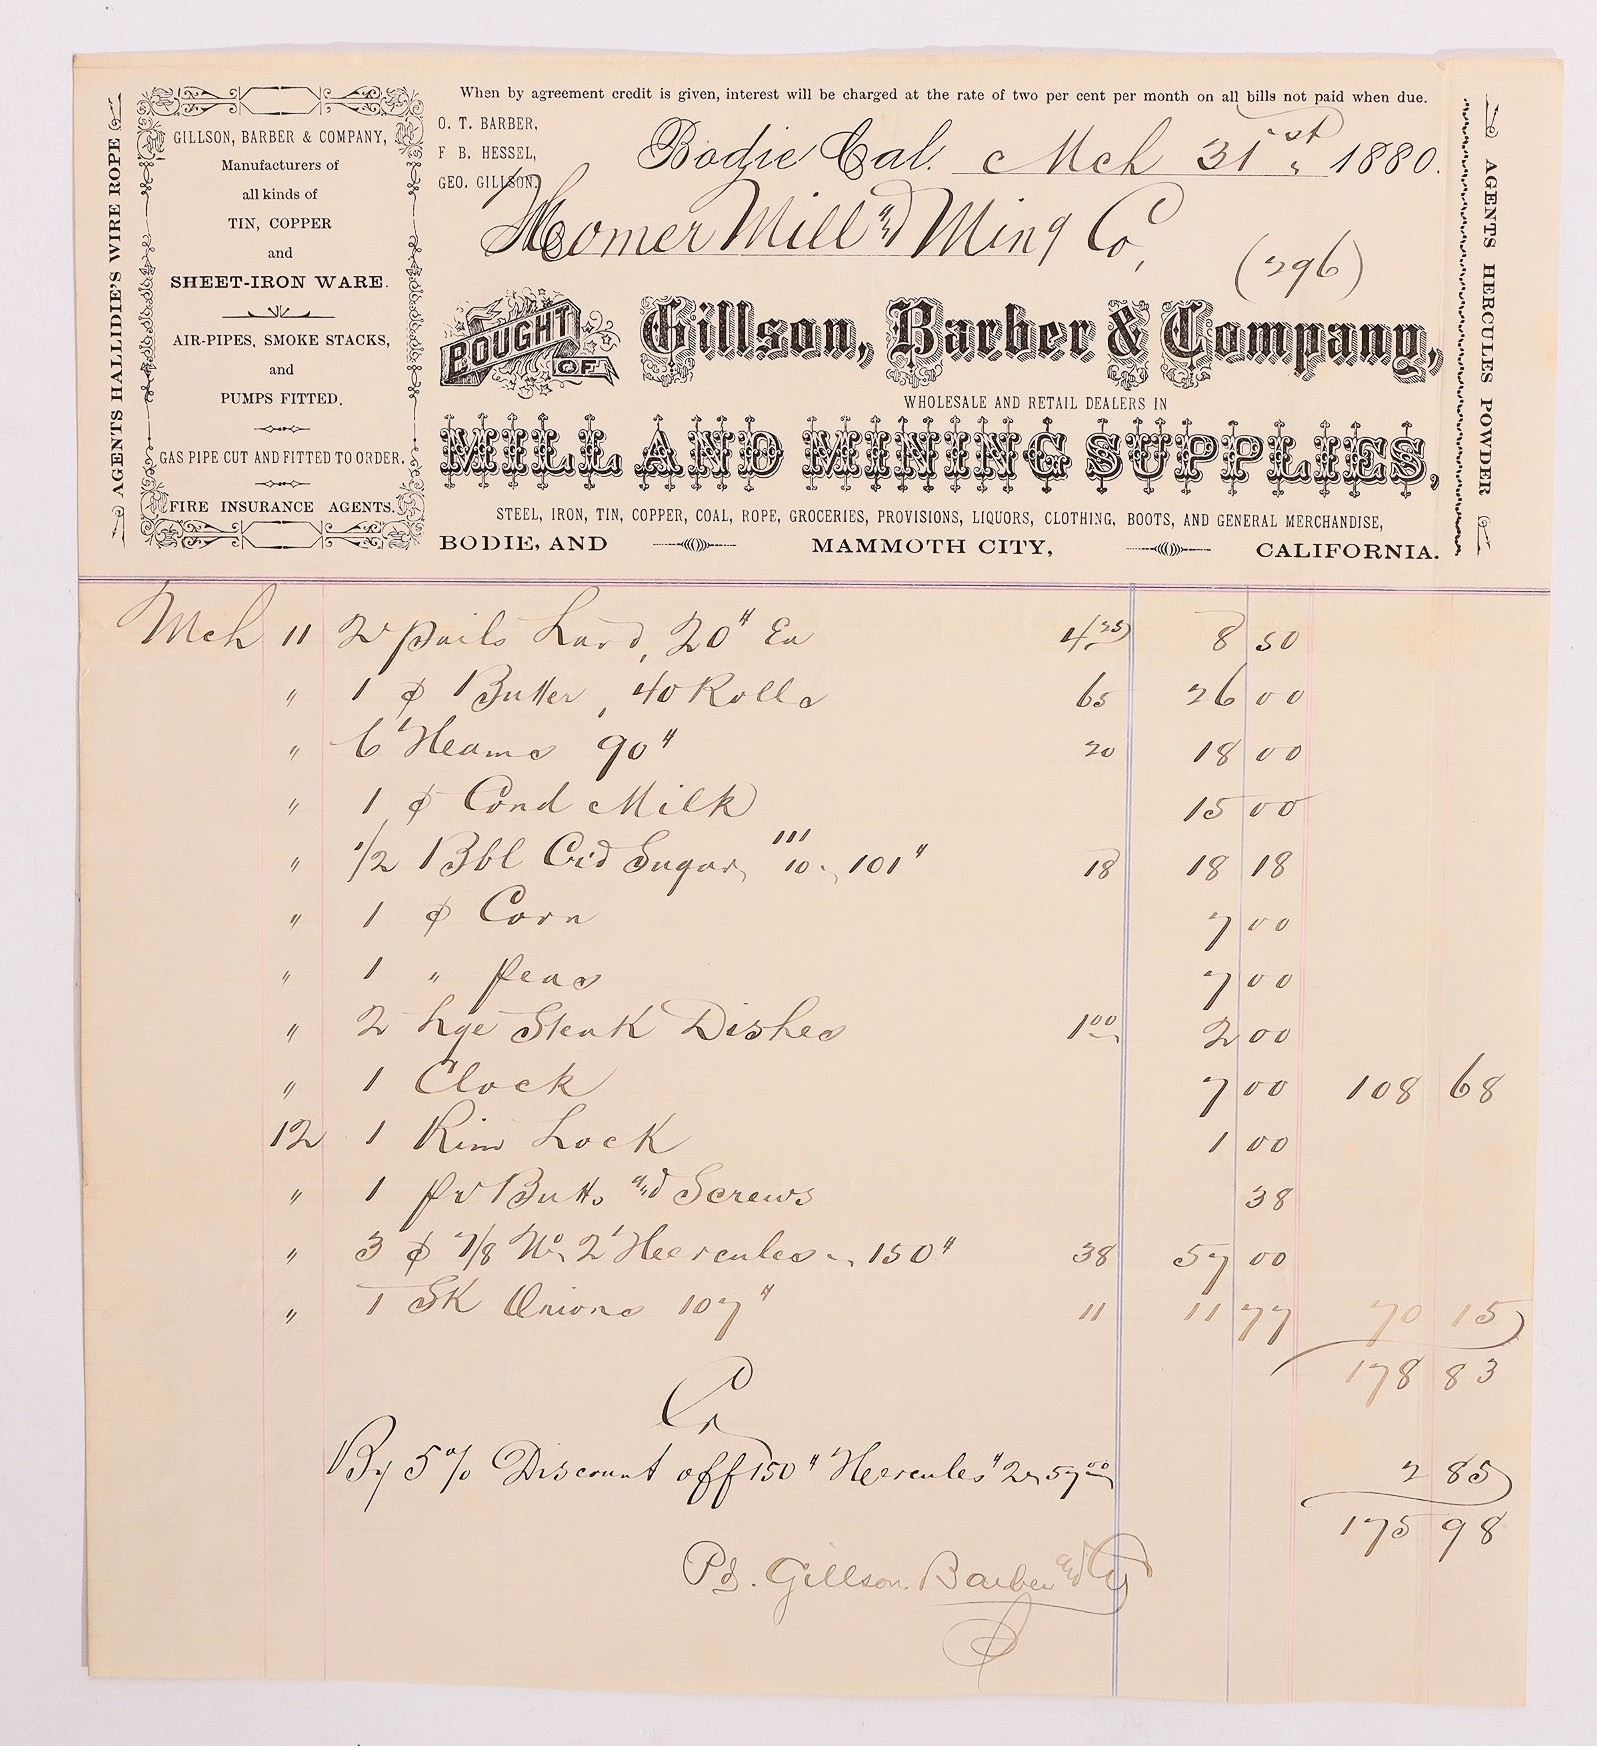 When by agreement credit is given, interest will be charged at the rate of two per cent per month on all bills not paid when due.
O. T. BARBER,
F B. HESSEL,
GEO. GILLSON.
Bodie Cal. Mch 31st 1880.
Homer Mill and Ming Co,
(296)
BOUGHT OF Gillson, Barber & Company,
WHOLESALE AND RETAIL DEALERS IN
MILL AND MINING SUPPLIES,
STEEL, IRON, TIN, COPPER, COAL, ROPE, GROCERIES, PROVISIONS, LIQUORS, CLOTHING, BOOTS, AND GENERAL MERCHANDISE,
BODIE, AND MAMMOTH CITY, CALIFORNIA.
AGENTS HALLIDIE'S WIRE ROPE
GILLSON, BARBER & COMPANY,
Manufacturers of
all kinds of
TIN, COPPER
and
SHEET-IRON WARE.
AIR-PIPES, SMOKE STACKS,
and
PUMPS FITTED.
GAS PIPE CUT AND FITTED TO ORDER.
FIRE INSURANCE AGENTS.
AGENTS HERCULES POWDER
Mch 11 2 pails Lard, 20" Ea 4 25 8 50
" 1 ¢ Butter, 40 Rolls 65 26 00
" 6 Hams 90" 20 18 00
" 1 ¢ Cond Milk 15 00
" 1/2 Bbl Crd Sugar, 111 10 101" 18 18 18
" 1 ¢ Corn 7 00
" 1 " peas 7 00
" 2 Lge Steak Dishes 1 00 2 00
" 1 Clock 7 00 108 68
12 1 Rim Lock 1 00
" 1 pr Butts and Screws 38
" 3 ¢ 7/8 No 2 Hercules 150" 38 57 00
" 1 SK Onions 107" 11 11 77 70 15
178 83
Cr
By 5% Discount off 150" Hercules "2 57 00 2 85
175 98
Pd. Gillson Barber and Co